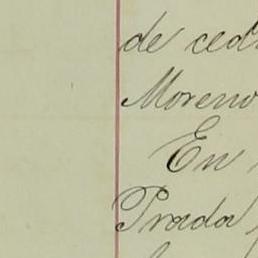 de ced
Moreno
En
Prada